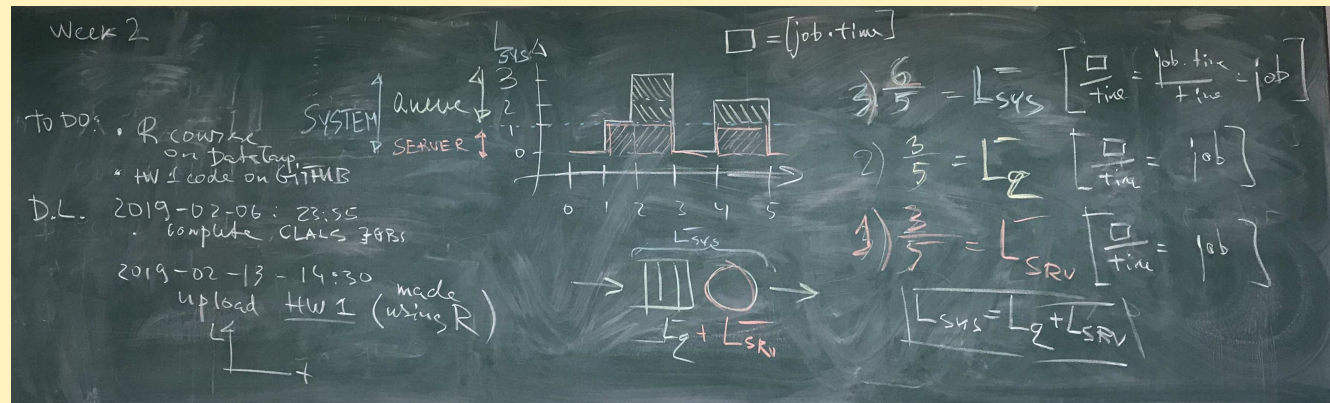 Week 2
TO DO: • R course
on DataCamp
• HW 1 code on GITHUB
D.L. 2019-02-06: 23:55
• complete CLALS JOBS
2019-02-13 - 14:30
upload HW 1 (made using R)
L
t
SYSTEM
Queue
SERVER
Lsys
3
2
1
0
0 1 2 3 4 5
Lsys
Lq + LSRV
□ = [job·time]
3) 6/5 = Lsys [□/time = job·time/time = job]
2) 3/5 = Lq [□/time = job]
1) 3/5 = LSRV [□/time = job]
Lsys = Lq + LSRV